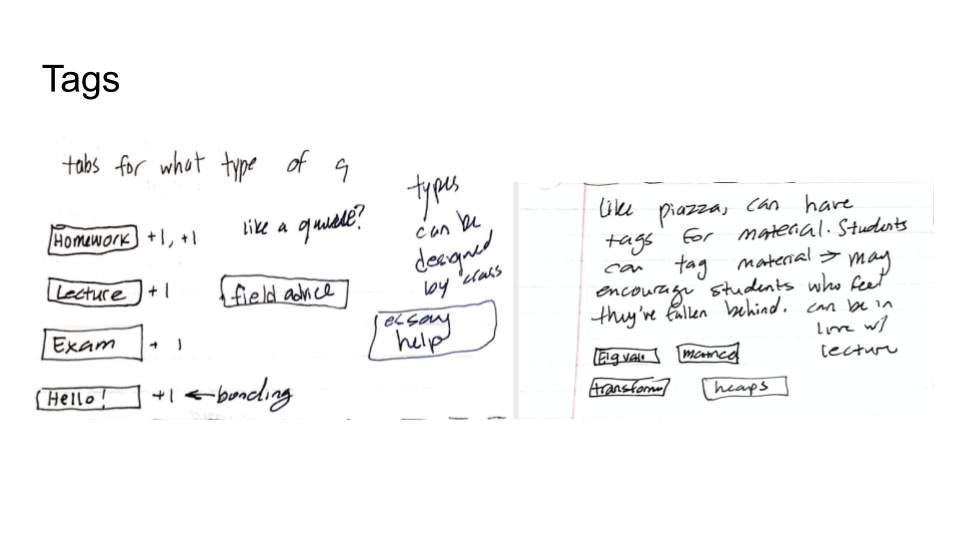 Tags
tabs for what type of q
Homework +1, +1
Lecture +1
Exam + 1
Hello! +1 ← bonding
like a
field advice
types
can be
designed
by class
essay
help
like piazza, can have
tags for material. Students
can tag material → may
encourage students who feel
they've fallen behind. can be in
line w/
lecture
Eigval
transform
heaps